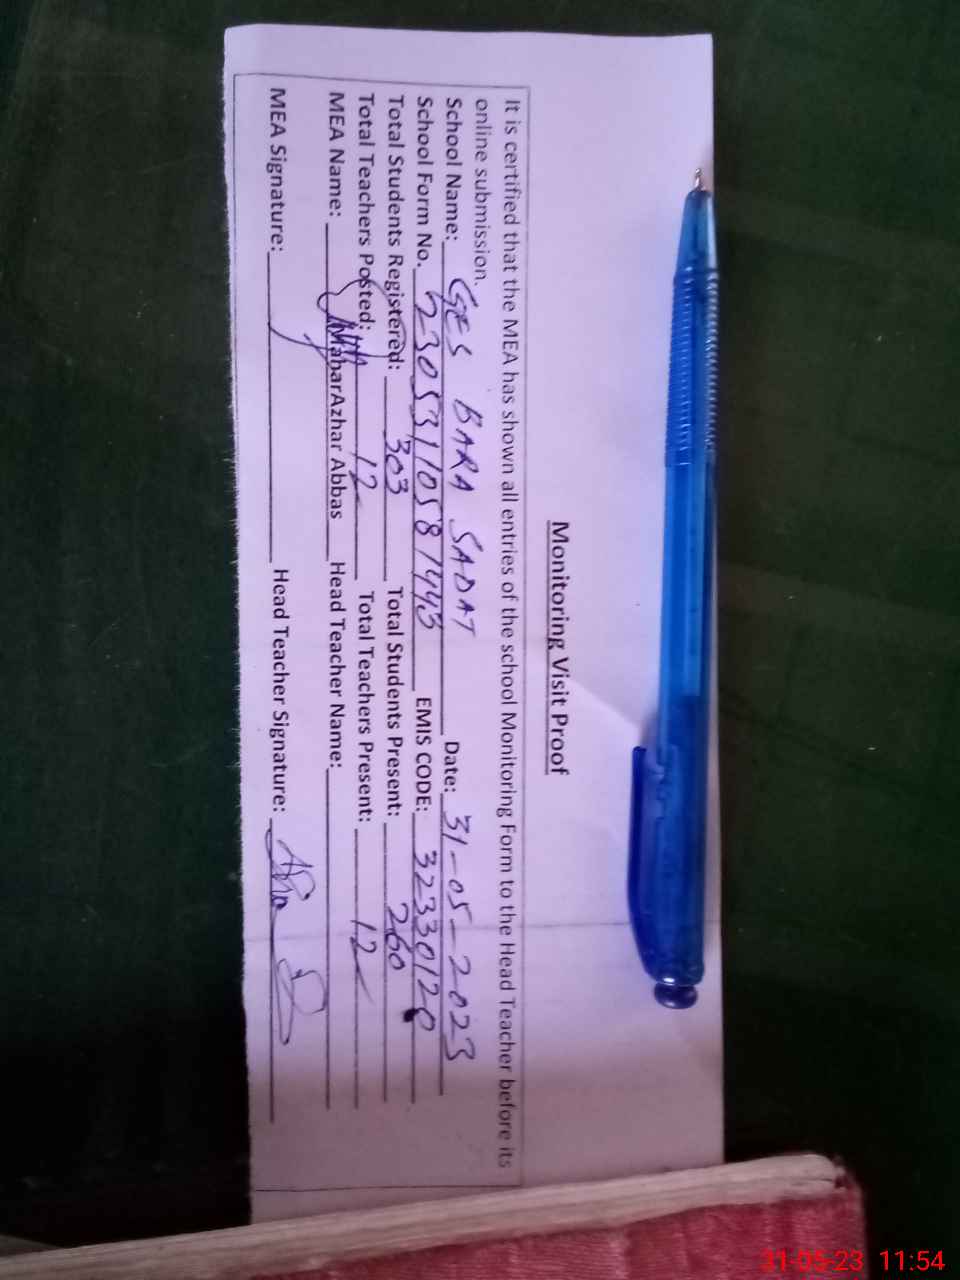 Monitoring Visit Proof
It is certified that the MEA has shown all entries of the school Monitoring Form to the Head Teacher before its
online submission.
School Name: GES BARA SADAT Date: 31-05-2023
School Form No. 23053110581443 EMIS CODE: 32330120
Total Students Registered: 303 Total Students Present: 260
Total Teachers Posted: 12 Total Teachers Present: 12
MEA Name: MaharAzhar Abbas Head Teacher Name:
MEA Signature: Head Teacher Signature:
31-05-23 11:54